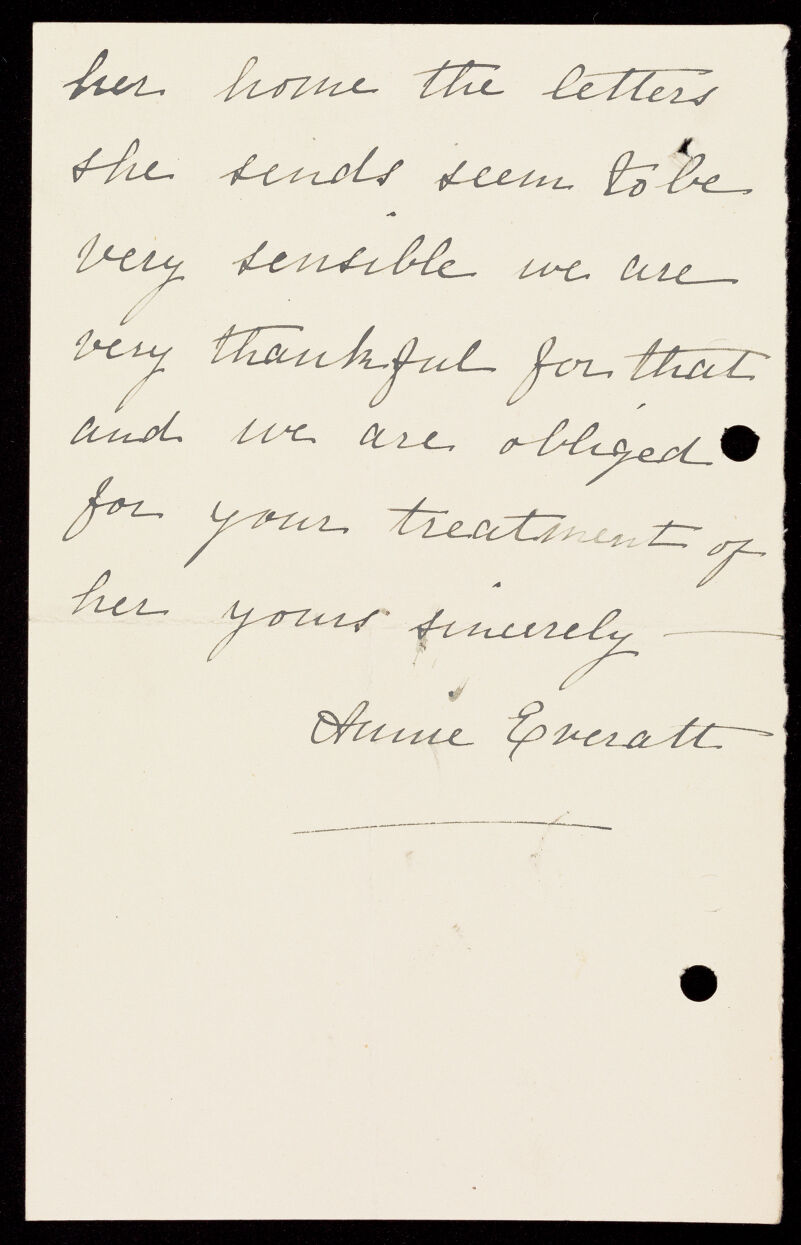 her home the letters
she sends seem to be
very sensible we are
very thankful for that
and we are obliged
for your treatment of
her yours sincerely
Annie Everatt